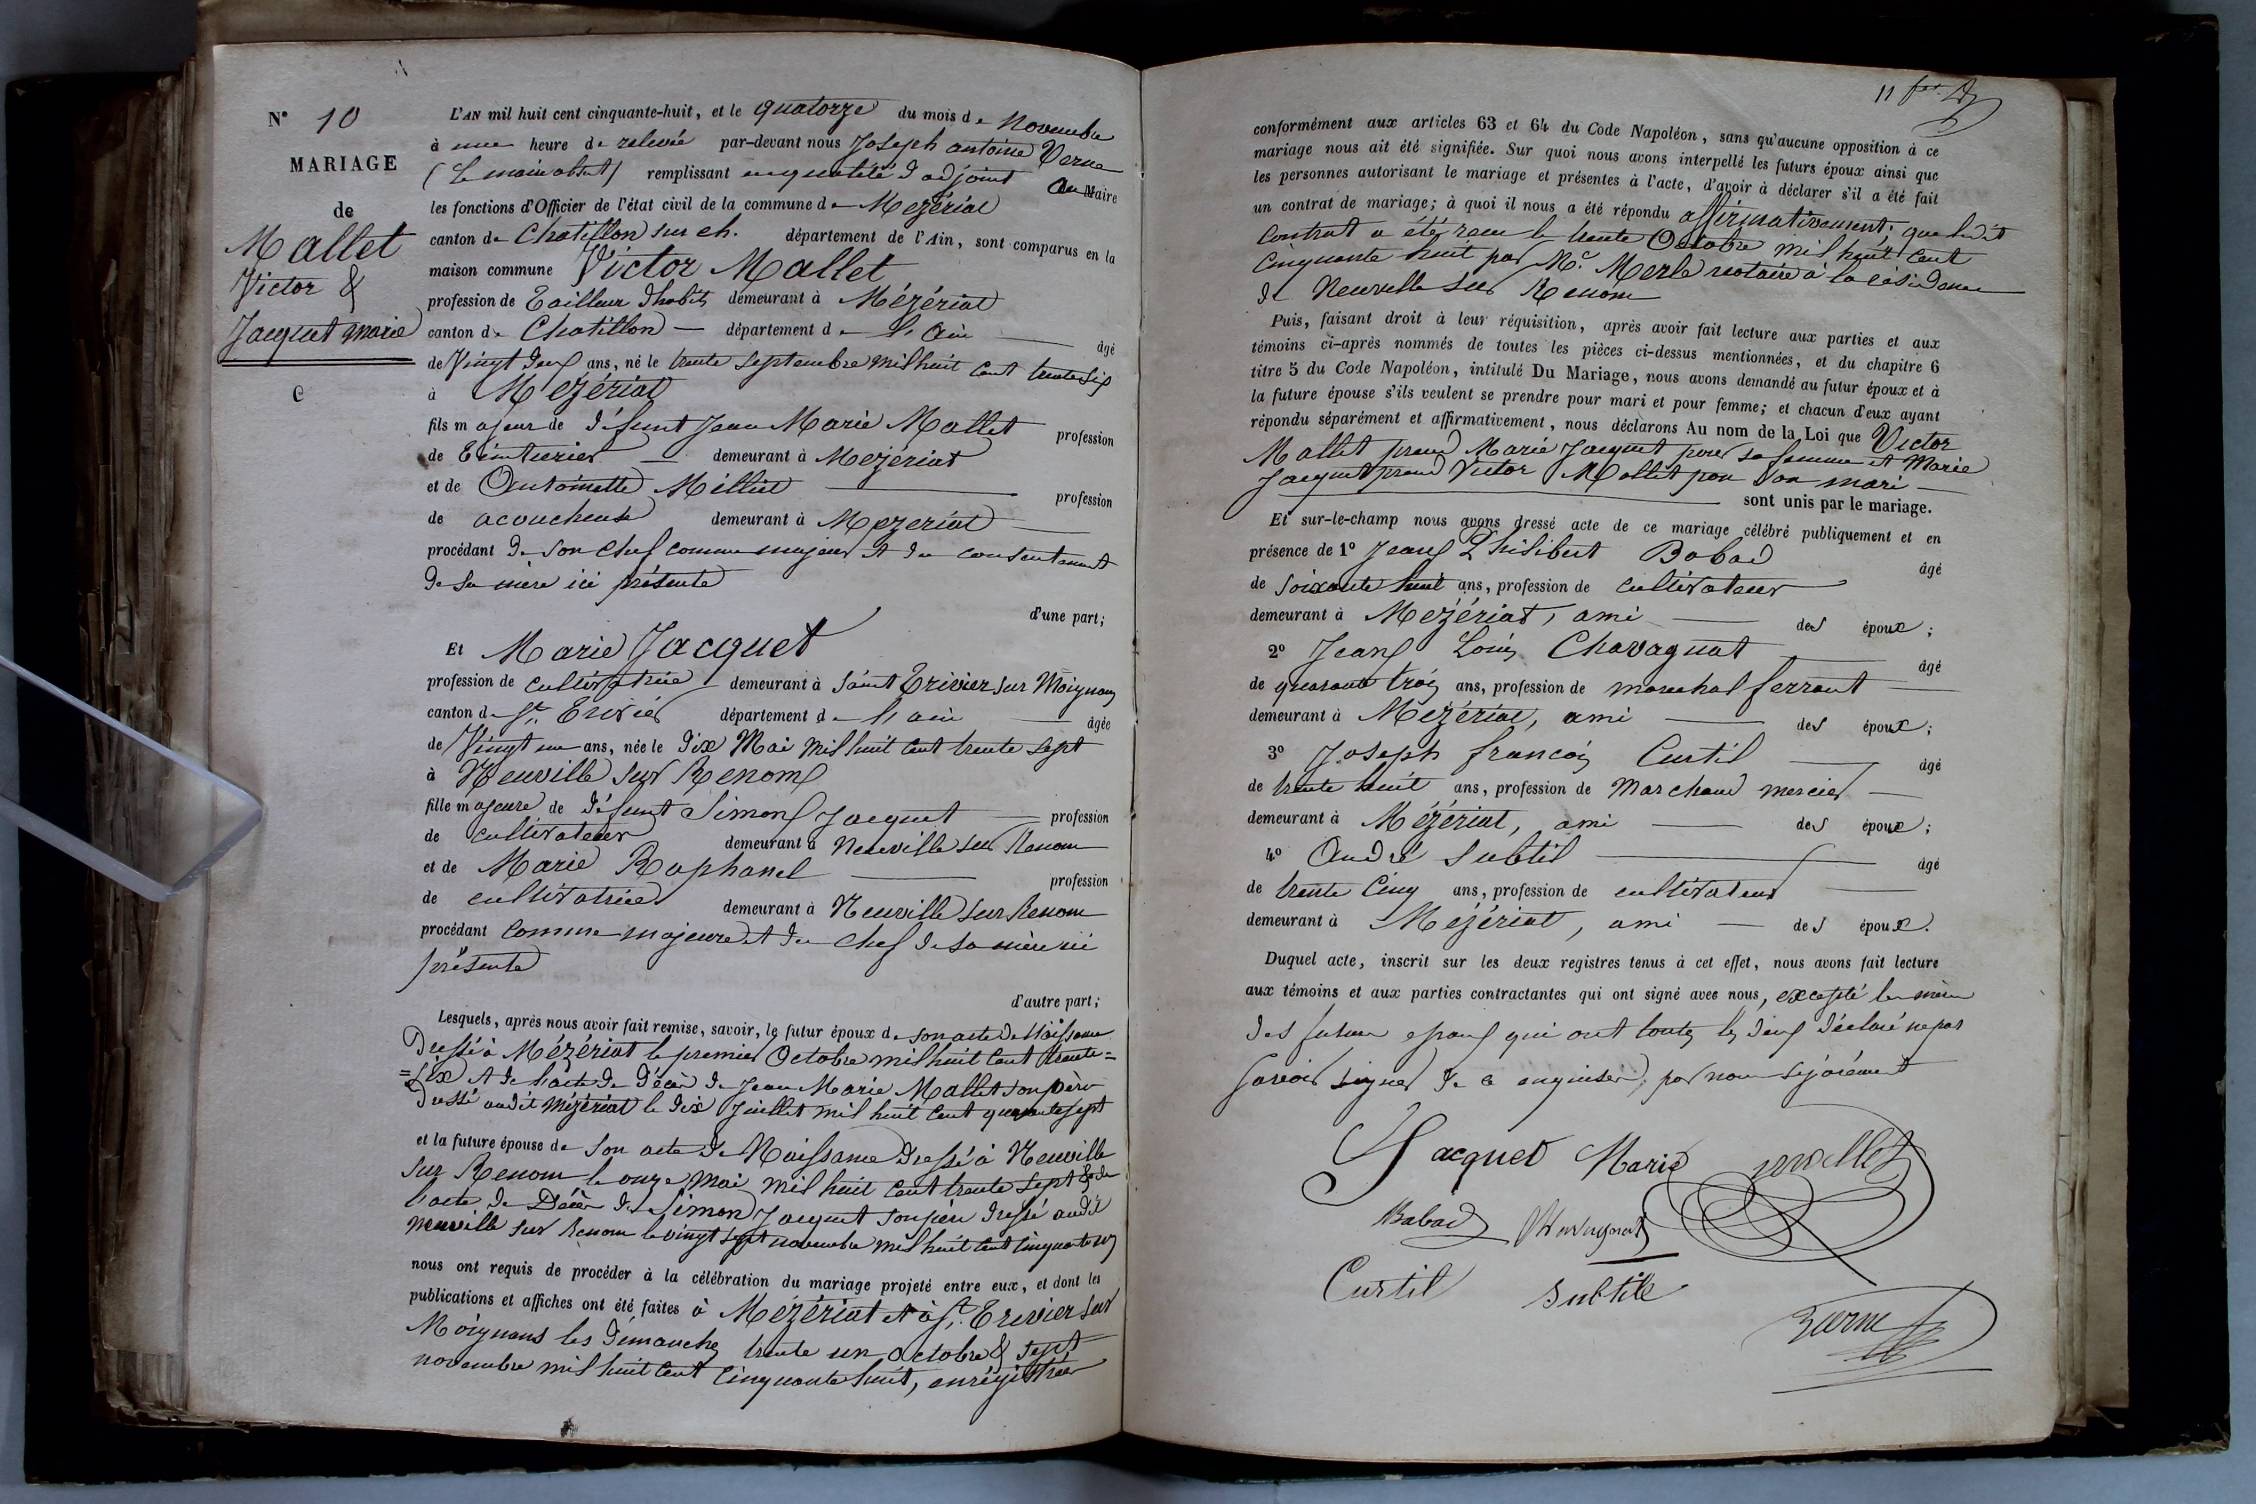 N° 10
MARIAGE
de
Mallet
Victor &
Jacquet Marie
C
L'AN mil huit cent cinquante-huit, et le quatorze du mois de Novembre
à une heure de relevée par-devant nous Joseph antoine Verne
(le maire absent) remplissant en qualité d'adjoint au Maire
les fonctions d'Officier de l'état civil de la commune de Mézériat
canton de Chatillon sur ch. département de l'Ain, sont comparus en la
maison commune Victor Mallet
profession de Tailleur d'habits demeurant à Mézériat
canton de Chatillon — département de l'Ain — âgé
de Vingt deux ans, né le trente septembre mil huit cent trente six
à Mézériat
fils majeur de défunt Jean Marie Mallet profession
de Teinturier — demeurant à Mézériat
et de Antoinette Milliet — profession
de acoucheuse demeurant à Mézériat —
procédant de son chef comme majeur et du consentement
de sa mère ici présente
d'une part;
Et Marie Jacquet
profession de cultivatrice demeurant à Saint Trivier sur Moignans
canton de St. Trivier département de l'ain — âgée
de Vingt un ans, née le dix Mai mil huit cent trente sept
à Neuville sur Renom
fille majeure de défunt Simon Jacquet — profession
de cultivateur demeurant à Neuville sur Renom
et de Marie Raphanel — profession
de cultivatrice demeurant à Neuville sur Renom
procédant comme majeure et du chef de sa mère ici
présente
d'autre part;
Lesquels, après nous avoir fait remise, savoir, le futur époux de son acte de Naissance
Dressé à Mézériat le premier Octobre mil huit cent trente=
=six et de l'acte de décès de Jean Marie Mallet son père
dressé audit Mézériat le dix Juillet mil huit cent quarante sept
et la future épouse de son acte de Naissance dressé à Neuville
sur Renom le onze Mai mil huit cent trente sept & de
l'acte de Décès de Simon Jacquet son père dressé audit
Neuville sur Renom le vingt sept novembre mil huit cent cinquante
nous ont requis de procéder à la célébration du mariage projeté entre eux, et dont les
publications et affiches ont été faites à Mézériat et à St. Trivier sur
Moignans les dimanches trente un octobre & sept
novembre mil huit cent cinquante huit, enrégistrées
11
conformément aux articles 63 et 64 du Code Napoléon, sans qu'aucune opposition à ce
mariage nous ait été signifiée. Sur quoi nous avons interpellé les futurs époux ainsi que
les personnes autorisant le mariage et présentes à l'acte, d'avoir à déclarer s'il a été fait
un contrat de mariage; à quoi il nous a été répondu affirmativement; que ledit
contrat a été recu le trente Octobre mil huit cent
cinquante huit par Me. Merle notaire à la résidence
de Neuville sur Renom
Puis, faisant droit à leur réquisition, après avoir fait lecture aux parties et aux
témoins ci-après nommés de toutes les pièces ci-dessus mentionnées, et du chapitre 6
titre 5 du Code Napoléon, intitulé Du Mariage, nous avons demandé au futur époux et à
la future épouse s'ils veulent se prendre pour mari et pour femme; et chacun d'eux ayant
répondu séparément et affirmativement, nous déclarons Au nom de la Loi que Victor
Mallet prend Marie Jacquet pour sa femme et Marie
Jacquet prend Victor Mallet pour son mari —
sont unis par le mariage.
Et sur-le-champ nous avons dressé acte de ce mariage célébré publiquement et en
présence de 1° Jean Philibert Babad âgé
de soixante huit ans, profession de cultivateur
demeurant à Mézériat, ami — des époux;
2° Jean Louis Chavagnat — âgé
de quarante trois ans, profession de marechal ferrant —
demeurant à Mézériat, ami — des époux;
3° Joseph francois Curtil — âgé
de trente huit ans, profession de Marchand mercier —
demeurant à Mézériat, ami — des époux;
4° André Subtil — âgé
de trente cinq ans, profession de cultivateur —
demeurant à Mézériat, ami — des époux.
Duquel acte, inscrit sur les deux registres tenus à cet effet, nous avons fait lecture
aux témoins et aux parties contractantes qui ont signé avec nous, excepté les mères
des futurs epoux qui ont toutes les deux déclaré ne pas
savoir signer de ce enquises, par nous séjarément
Jacquet Marie Mallet
Babad Chavagnat
Curtil Subtil
Verne